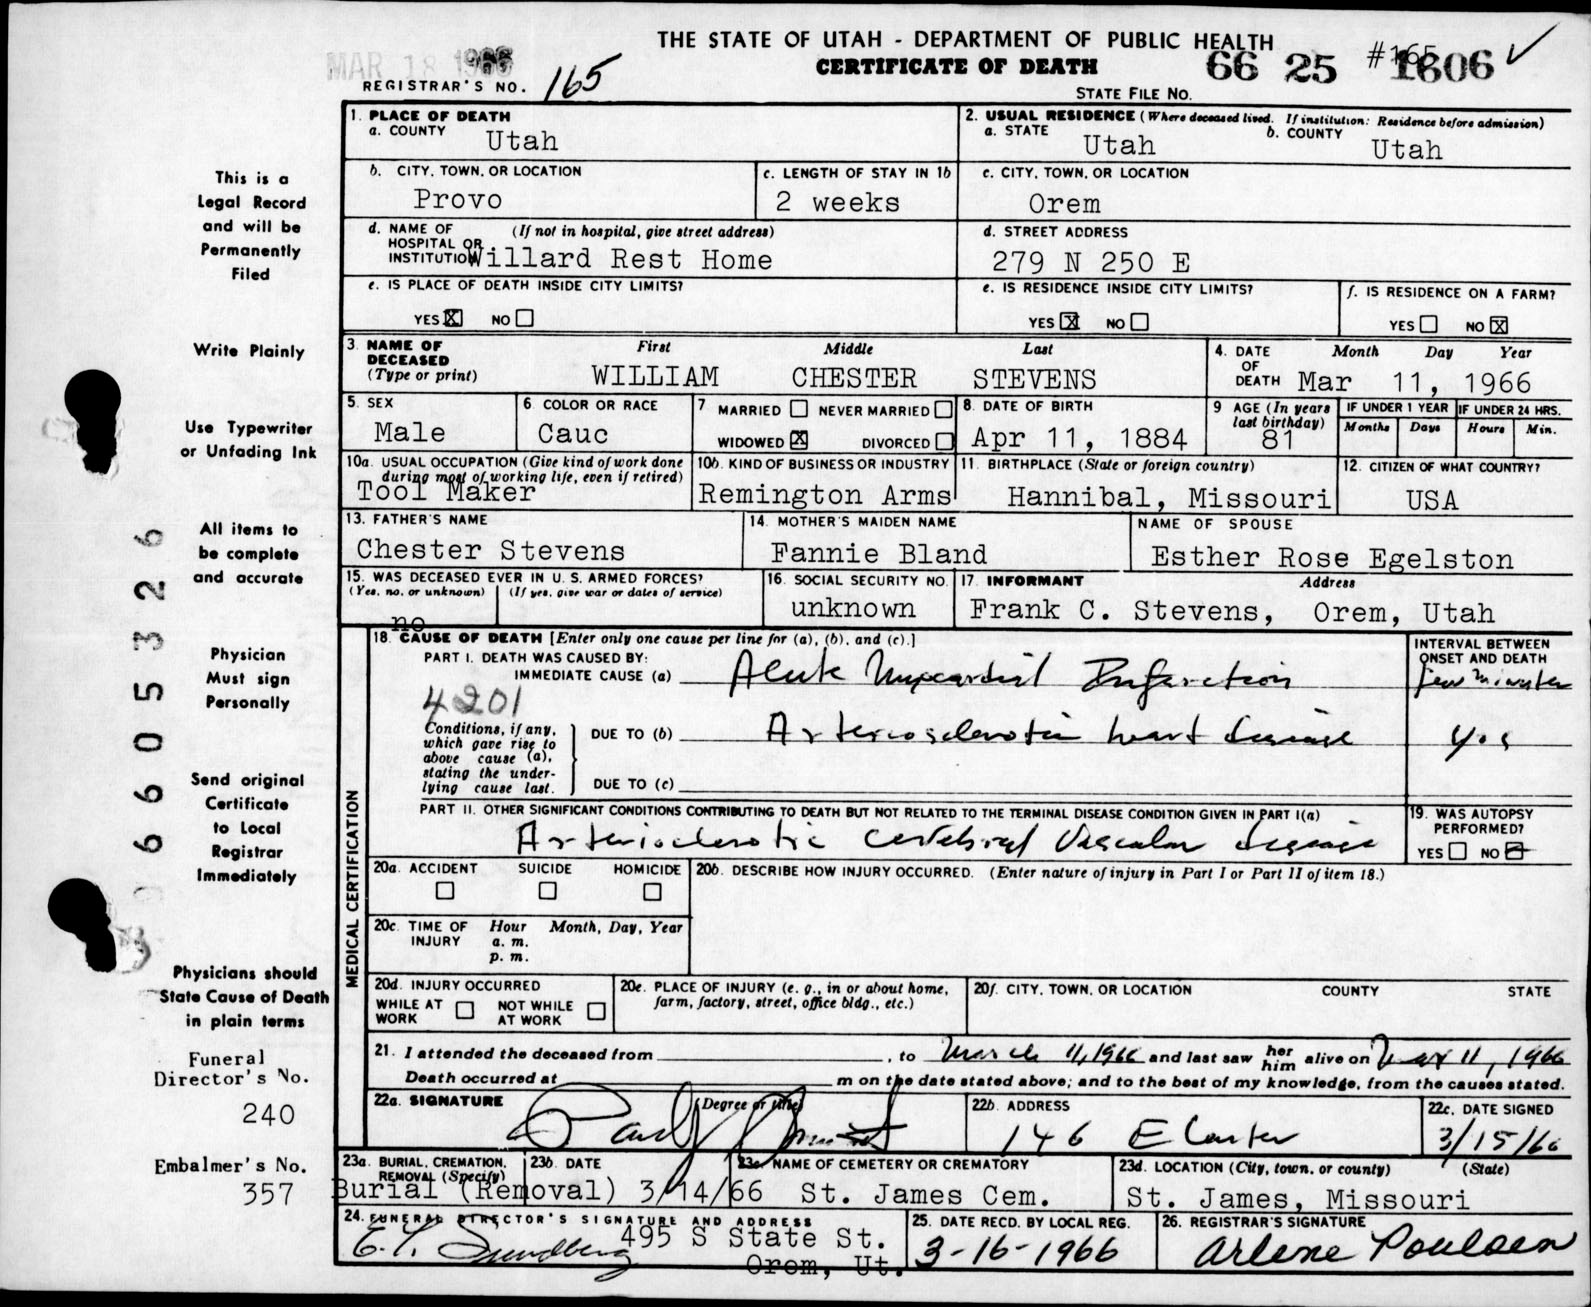 THE STATE OF UTAH - DEPARTMENT OF PUBLIC HEALTH
CERTIFICATE OF DEATH
MAR 18 1966
REGISTRAR'S NO. 165
STATE FILE NO. 66 25 1606
#165 ✓
This is a
Legal Record
and will be
Permanently
Filed
Write Plainly
Use Typewriter
or Unfading Ink
All items to
be complete
and accurate
Physician
Must sign
Personally
Send original
Certificate
to Local
Registrar
Immediately
Physicians should
State Cause of Death
in plain terms
Funeral
Director's No.
240
Embalmer's No.
357
6605326
1. PLACE OF DEATH
a. COUNTY Utah
2. USUAL RESIDENCE (Where deceased lived. If institution: Residence before admission)
a. STATE Utah b. COUNTY Utah
b. CITY, TOWN, OR LOCATION
Provo
c. LENGTH OF STAY IN 1b
2 weeks
c. CITY, TOWN, OR LOCATION
Orem
d. NAME OF (If not in hospital, give street address)
HOSPITAL OR
INSTITUTION Willard Rest Home
d. STREET ADDRESS
279 N 250 E
e. IS PLACE OF DEATH INSIDE CITY LIMITS?
YES X NO
e. IS RESIDENCE INSIDE CITY LIMITS?
YES X NO
f. IS RESIDENCE ON A FARM?
YES NO X
3. NAME OF DECEASED (Type or print)
First Middle Last
WILLIAM CHESTER STEVENS
4. DATE OF DEATH
Month Day Year
Mar 11, 1966
5. SEX
Male
6. COLOR OR RACE
Cauc
7 MARRIED NEVER MARRIED
WIDOWED X DIVORCED
8. DATE OF BIRTH
Apr 11, 1884
9 AGE (In years last birthday)
81
IF UNDER 1 YEAR
Months Days
IF UNDER 24 HRS.
Hours Min.
10a. USUAL OCCUPATION (Give kind of work done during most of working life, even if retired)
Tool Maker
10b. KIND OF BUSINESS OR INDUSTRY
Remington Arms
11. BIRTHPLACE (State or foreign country)
Hannibal, Missouri
12. CITIZEN OF WHAT COUNTRY?
USA
13. FATHER'S NAME
Chester Stevens
14. MOTHER'S MAIDEN NAME
Fannie Bland
NAME OF SPOUSE
Esther Rose Egelston
15. WAS DECEASED EVER IN U. S. ARMED FORCES?
(Yes, no, or unknown) (If yes, give war or dates of service)
no
16. SOCIAL SECURITY NO.
unknown
17. INFORMANT Address
Frank C. Stevens, Orem, Utah
MEDICAL CERTIFICATION
18. CAUSE OF DEATH [Enter only one cause per line for (a), (b), and (c).]
PART I. DEATH WAS CAUSED BY:
IMMEDIATE CAUSE (a) Acute Myocardial Infarction
INTERVAL BETWEEN
ONSET AND DEATH
few minutes
4201
Conditions, if any,
which gave rise to
above cause (a),
stating the under-
lying cause last.
DUE TO (b) Arteriosclerotic heart disease
yrs
DUE TO (c)
PART II. OTHER SIGNIFICANT CONDITIONS CONTRIBUTING TO DEATH BUT NOT RELATED TO THE TERMINAL DISEASE CONDITION GIVEN IN PART I(a)
Arteriosclerotic cerebral vascular disease
19. WAS AUTOPSY
PERFORMED?
YES NO
20a. ACCIDENT SUICIDE HOMICIDE
20b. DESCRIBE HOW INJURY OCCURRED. (Enter nature of injury in Part I or Part II of item 18.)
20c. TIME OF INJURY
Hour Month, Day, Year
a. m.
p. m.
20d. INJURY OCCURRED
WHILE AT WORK NOT WHILE AT WORK
20e. PLACE OF INJURY (e. g., in or about home,
farm, factory, street, office bldg., etc.)
20f. CITY, TOWN, OR LOCATION COUNTY STATE
21. I attended the deceased from , to March 11, 1966 and last saw her him alive on Mar 11, 1966
Death occurred at m on the date stated above; and to the best of my knowledge, from the causes stated.
22a. SIGNATURE (Degree or title)
22b. ADDRESS
146 E Center
22c. DATE SIGNED
3/15/66
23a. BURIAL, CREMATION, REMOVAL (Specify)
Burial (Removal)
23b. DATE
3/14/66
23c. NAME OF CEMETERY OR CREMATORY
St. James Cem.
23d. LOCATION (City, town, or county) (State)
St. James, Missouri
24. FUNERAL DIRECTOR'S SIGNATURE AND ADDRESS
Sundberg 495 S State St.
Orom, Ut.
25. DATE RECD. BY LOCAL REG.
3-16-1966
26. REGISTRAR'S SIGNATURE
Arlene Poulsen